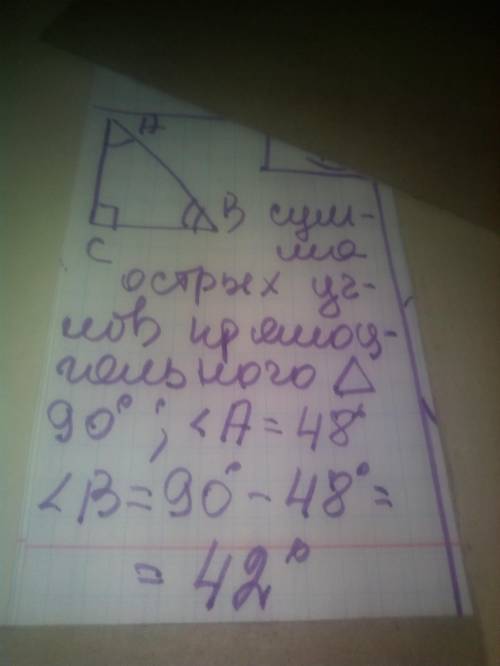 A
B сум-
C ма
острых уг-
лов прямоу-
гольного △
90°; <A = 48°
<B = 90° - 48° =
= 42°